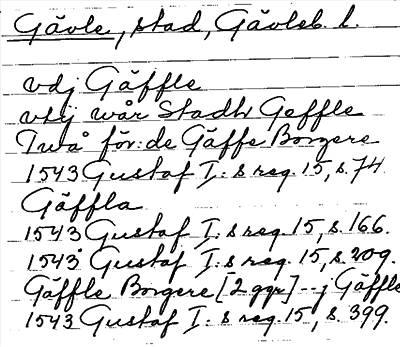 Gävle, stad, Gävleb. l.
vdj Gäffle
vtij wår Stadh Geffle
Twå för:de Gäffe Borgere
1543 Gustaf I:s reg. 15, s. 74
Gäffla
1543 Gustaf I:s reg. 15, s. 166.
1543 Gustaf I:s reg. 15, s. 209.
Gäffle Borgere [2 ggr] -- j Gäffle
1543 Gustaf I:s reg. 15, s. 399.